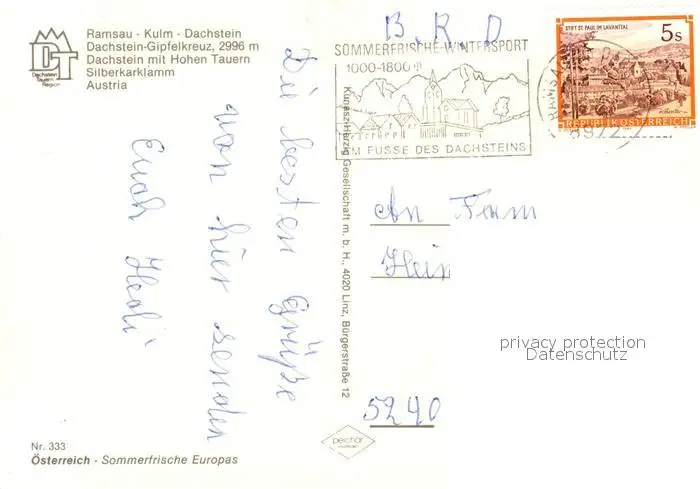 Ramsau - Kulm - Dachstein
Dachstein-Gipfelkreuz, 2996 m
Dachstein mit Hohen Tauern
Silberkarklamm
Austria
DT
Dachstein
Tauern
Region
B. R. D
SOMMERFRISCHE-WINTERSPORT
1000-1800 m
AM FUSSE DES DACHSTEINS
STIFT ST. PAUL IM LAVANTTAL
5s
REPUBLIK ÖSTERREICH
RAMSA
8972
Die besten Grüße
von hier senden
Euch Hedi
Gesellschaft m. b. H., 4020 Linz, Bürgerstraße 12
An Fam
Hein
privacy protection
Datenschutz
5240
Nr. 333
Österreich - Sommerfrische Europas